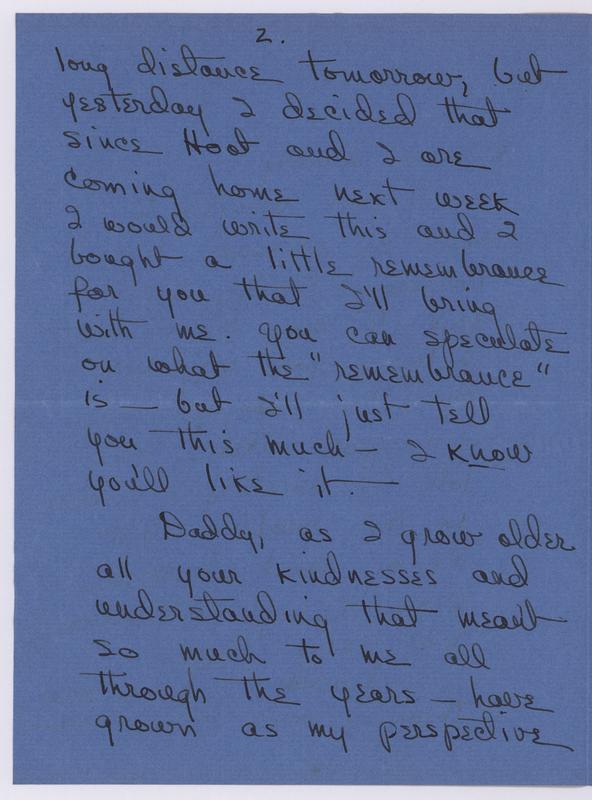 2.
long distance tomorrow, but
yesterday I decided that
since Hoot and I are
coming home next week
I would write this and I
bought a little remembrance
for you that I'll bring
with me. You can speculate
on what the "remembrance"
is — but I'll just tell
you this much — I know
you'll like it —
Daddy, as I grow older
all your kindnesses and
understanding that meant
so much to me all
through the years — have
grown as my perspective